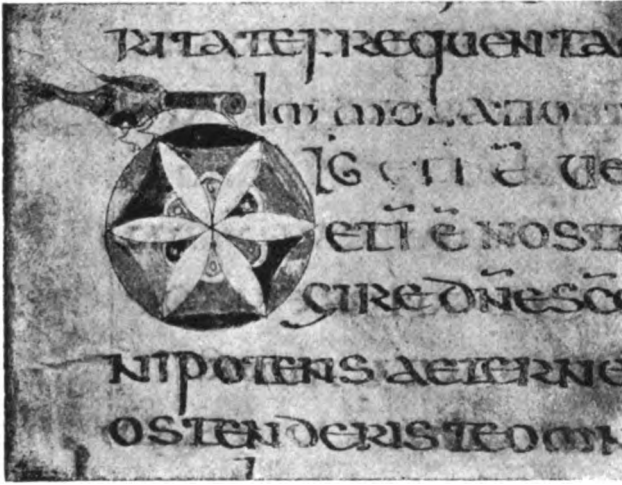 RITATE FREQUENTA
Immolatio
DIG ETĪ Ē UE
ETĪ Ē NOSTR
CIRE DN̄E SC̄
NIPOTENS AETERNE
OSTENDERIS TE OMN